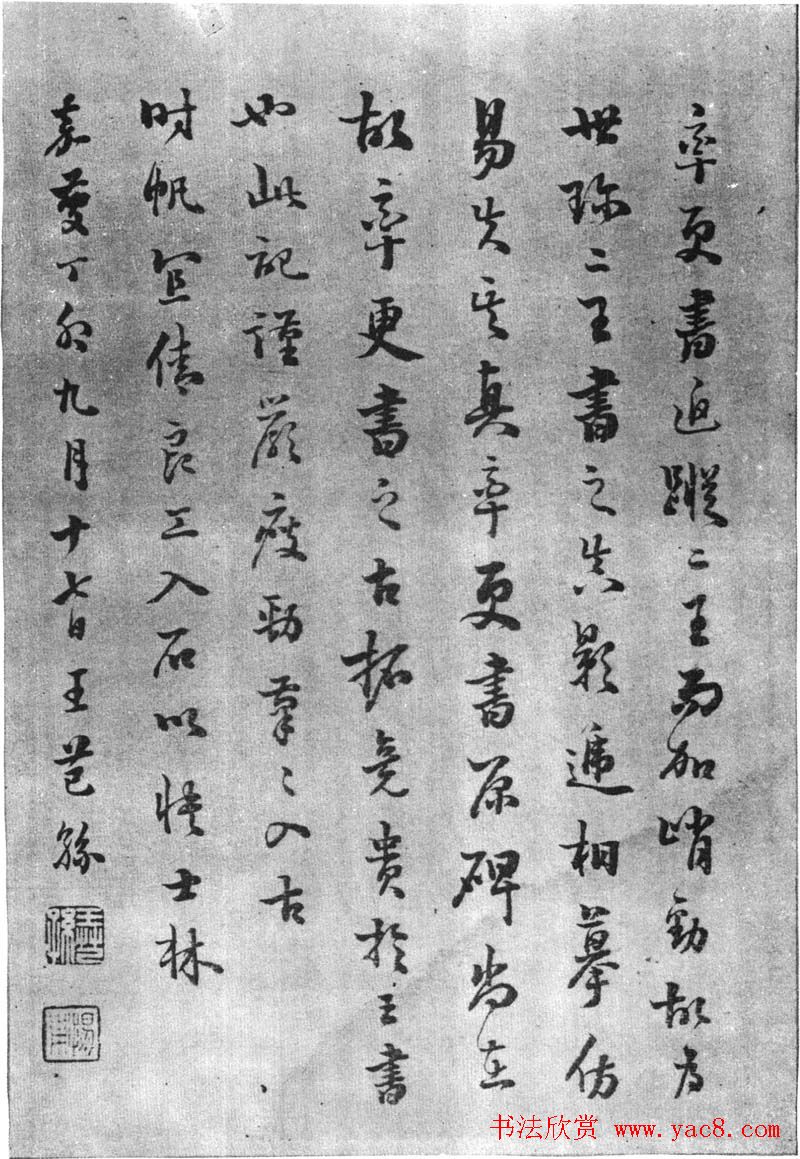 率更書追蹤二王而加峭勁故為
世珍二王書之失影遞相摹仿
易失其真率更書原碑尚在
故率更書之古拓竟貴於王書
也此記謹嚴瘦勁筆筆入古
時帆宜倩良工入石以惠士林
嘉慶丁卯九月十七日王芑孫
书法欣赏 www.yac8.com